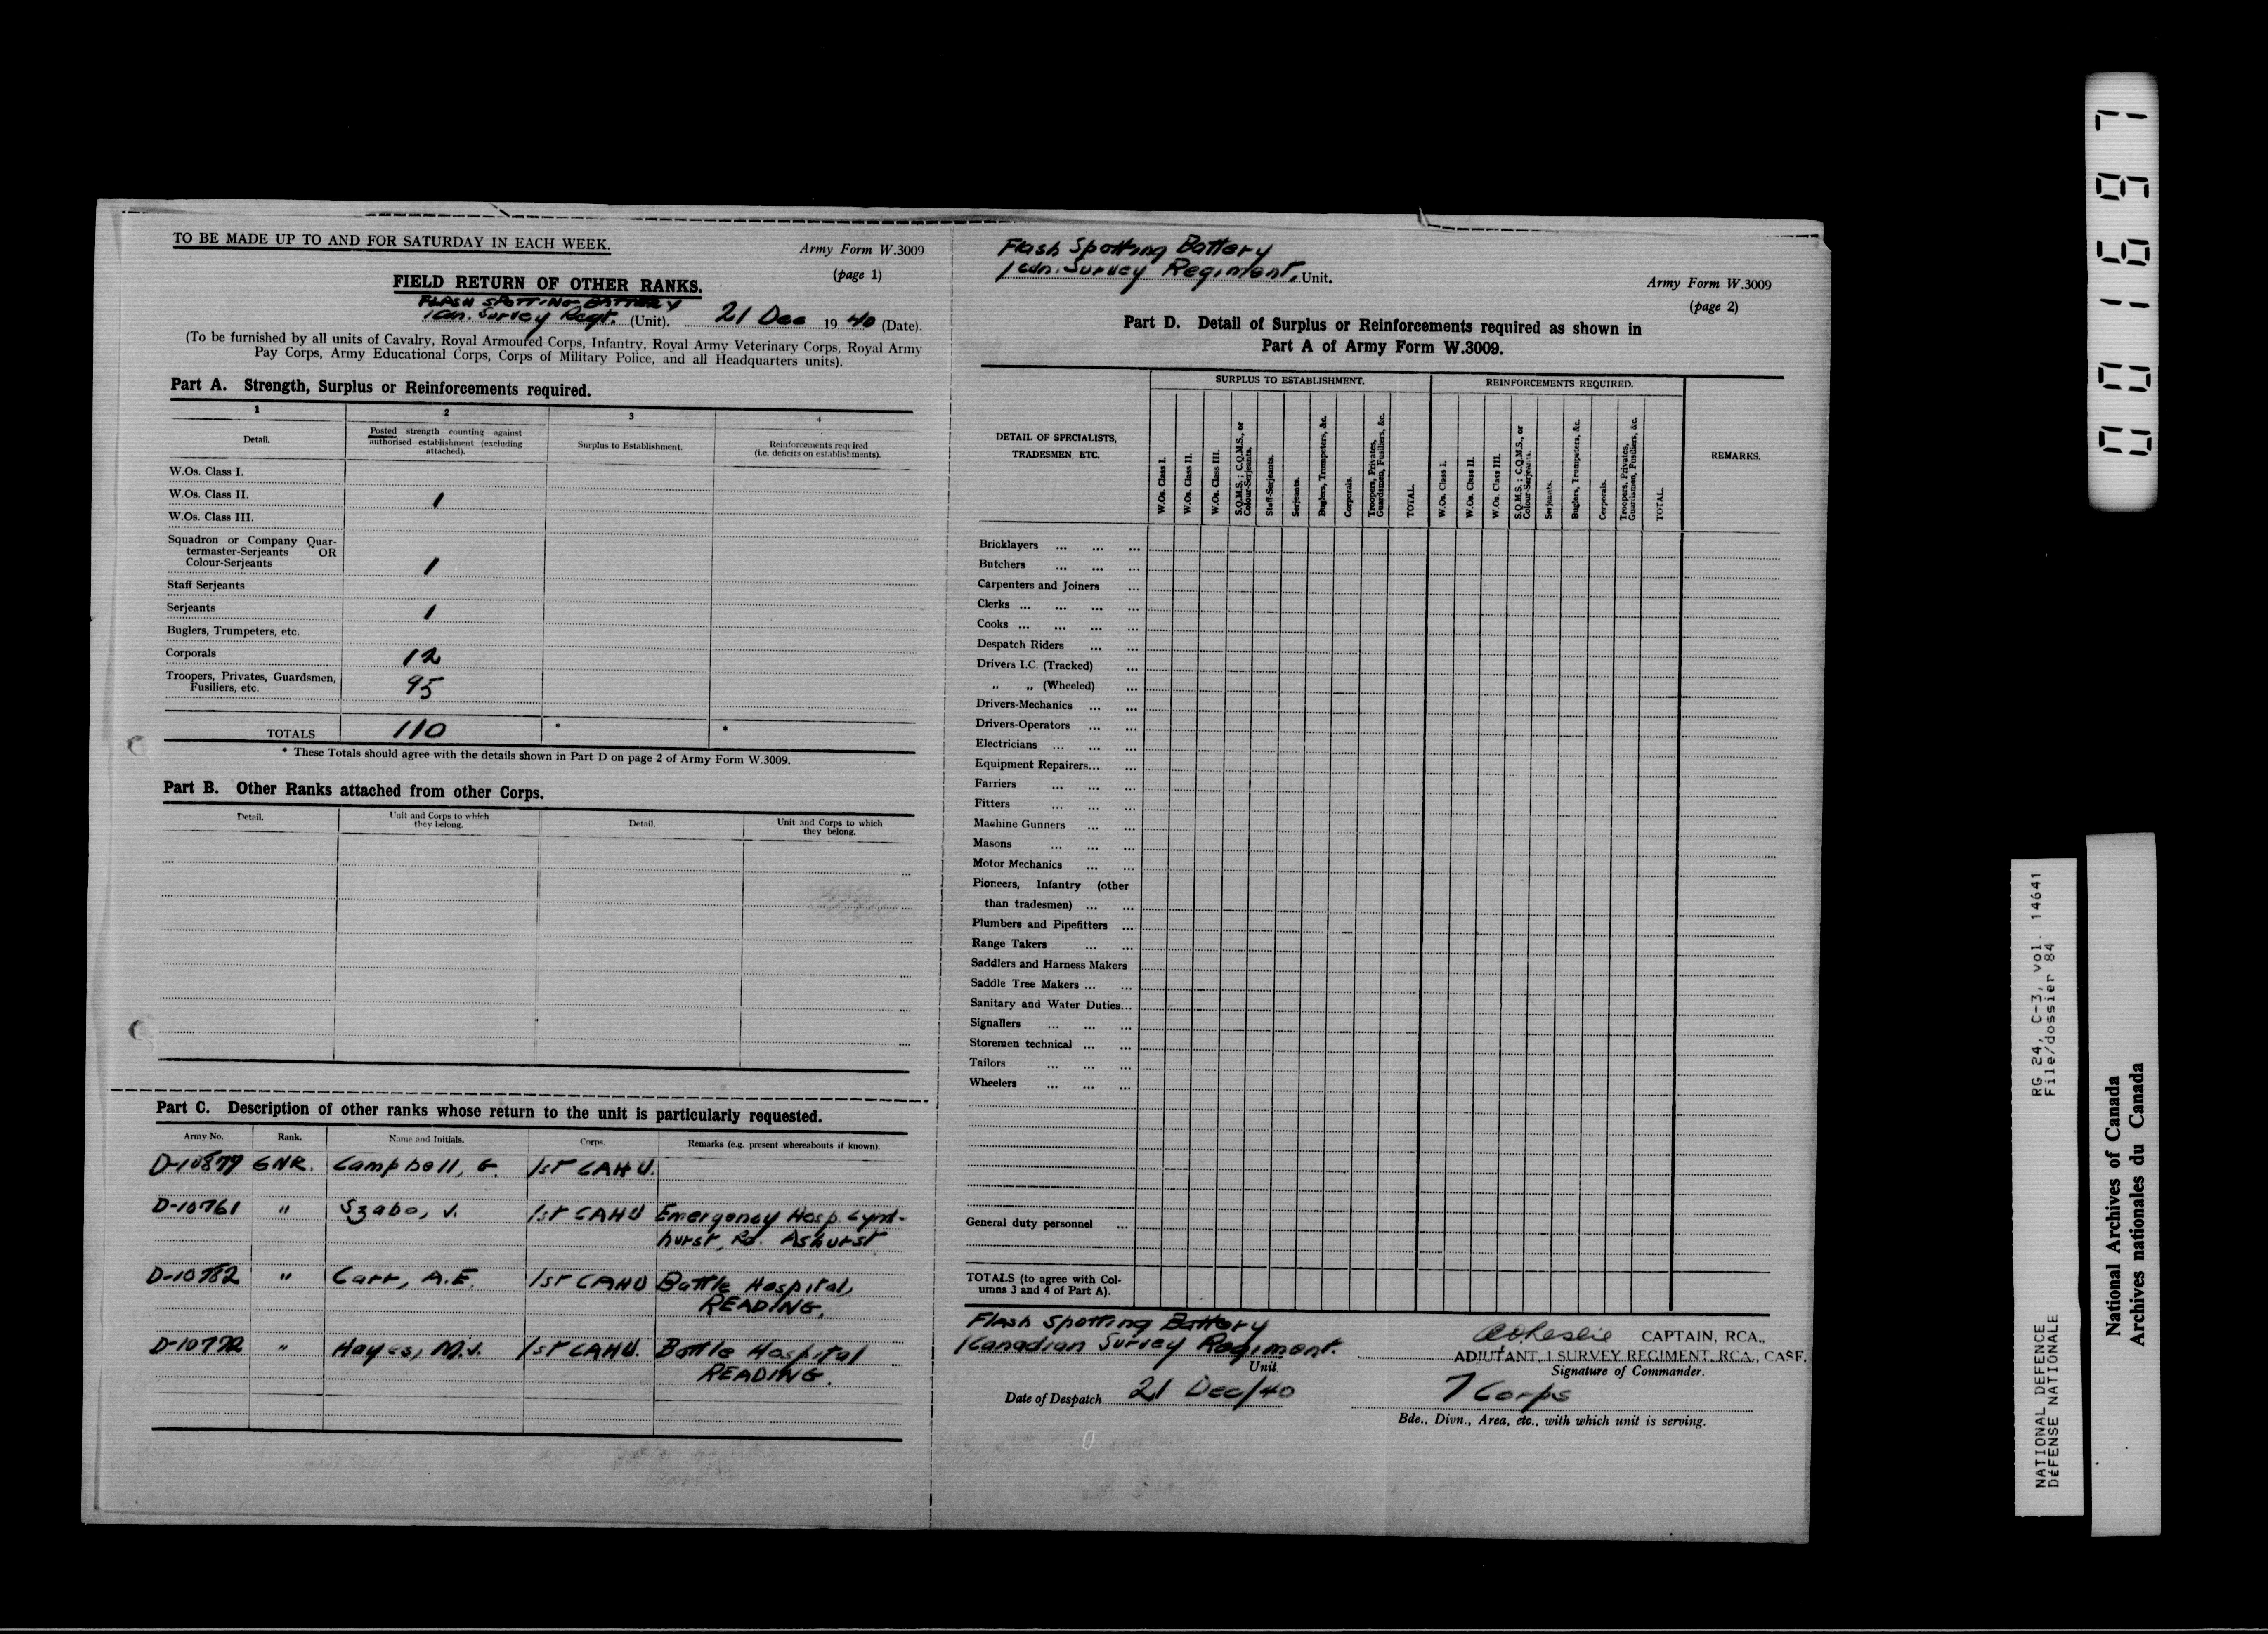 TO BE MADE UP TO AND FOR SATURDAY IN EACH WEEK.
Army Form W.3009
(page 1)
FIELD RETURN OF OTHER RANKS.
FLASH SPOTTING BATTERY
1 Cdn. Survey Regt. (Unit). 21 Dec 19 40 (Date).
(To be furnished by all units of Cavalry, Royal Armoured Corps, Infantry, Royal Army Veterinary Corps, Royal Army
Pay Corps, Army Educational Corps, Corps of Military Police, and all Headquarters units).
Part A. Strength, Surplus or Reinforcements required.
1 2 3 4
Detail.
Posted strength counting against
authorised establishment (excluding
attached).
Surplus to Establishment.
Reinforcements required
(i.e. deficits on establishments).
W.Os. Class I.
W.Os. Class II. 1
W.Os. Class III.
Squadron or Company Quar-
termaster-Serjeants OR
Colour-Serjeants 1
Staff Serjeants
Serjeants 1
Buglers, Trumpeters, etc.
Corporals 12
Troopers, Privates, Guardsmen,
Fusiliers, etc. 95
TOTALS 110 * *
* These Totals should agree with the details shown in Part D on page 2 of Army Form W.3009.
Part B. Other Ranks attached from other Corps.
Detail.
Unit and Corps to which
they belong.
Detail.
Unit and Corps to which
they belong.
Part C. Description of other ranks whose return to the unit is particularly requested.
Army No. Rank. Name and Initials. Corps. Remarks (e.g. present whereabouts if known).
D-10877 GNR. Campbell, G. 1st CAHU.
D-10761 " Szabo, V. 1st CAHU Emergency Hosp. Lynd-
hurst, Rd. Ashurst
D-10782 " Carr, A.E. 1st CAHU Battle Hospital,
READING.
D-10772 " Hayes, M.V. 1st CAHU. Battle Hospital
READING.
Flash Spotting Battery
1 Cdn. Survey Regiment, Unit.
Army Form W.3009
(page 2)
Part D. Detail of Surplus or Reinforcements required as shown in
Part A of Army Form W.3009.
DETAIL OF SPECIALISTS,
TRADESMEN, ETC.
SURPLUS TO ESTABLISHMENT.
W.Os. Class I.
W.Os. Class II.
W.Os. Class III.
S.Q.M.S.; C.Q.M.S., or
Colour-Serjeants.
Staff-Serjeants.
Serjeants.
Buglers, Trumpeters, &c.
Corporals.
Troopers, Privates,
Guardsmen, Fusiliers, &c.
TOTAL.
REINFORCEMENTS REQUIRED.
W.Os. Class I.
W.Os. Class II.
W.Os. Class III.
S.Q.M.S.; C.Q.M.S., or
Colour-Serjeants.
Serjeants.
Buglers, Trumpeters, &c.
Corporals.
Troopers, Privates,
Guardsmen, Fusiliers, &c.
TOTAL.
REMARKS.
Bricklayers ... ... ...
Butchers ... ... ...
Carpenters and Joiners ...
Clerks ... ... ... ...
Cooks ... ... ... ...
Despatch Riders ... ...
Drivers I.C. (Tracked) ...
" " (Wheeled) ...
Drivers-Mechanics ... ...
Drivers-Operators ... ...
Electricians ... ... ...
Equipment Repairers... ...
Farriers ... ... ...
Fitters ... ... ...
Machine Gunners ... ...
Masons ... ... ...
Motor Mechanics ... ...
Pioneers, Infantry (other
than tradesmen) ... ...
Plumbers and Pipefitters ...
Range Takers ... ...
Saddlers and Harness Makers
Saddle Tree Makers ... ...
Sanitary and Water Duties...
Signallers ... ... ...
Storemen technical ... ...
Tailors ... ... ...
Wheelers ... ... ...
General duty personnel ...
TOTALS (to agree with Col-
umns 3 and 4 of Part A).
Flash Spotting Battery
1 Canadian Survey Regiment.
Unit.
Date of Despatch 21 Dec/40
CAPTAIN, RCA.,
ADJUTANT, 1 SURVEY REGIMENT, RCA., CASF.
Signature of Commander.
7 Corps
Bde., Divn., Area, etc., with which unit is serving.
001697
RG 24, C-3, vol. 14641
File/dossier 84
NATIONAL DEFENCE
DÉFENSE NATIONALE
National Archives of Canada
Archives nationales du Canada